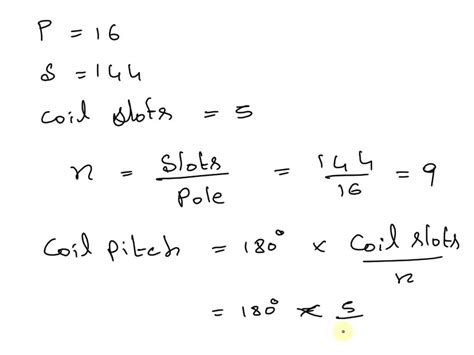 P = 16
S = 144
coil slots = 5
n = Slots/Pole = 144/16 = 9
Coil pitch = 180° × Coil slots/n
= 180° × 5/